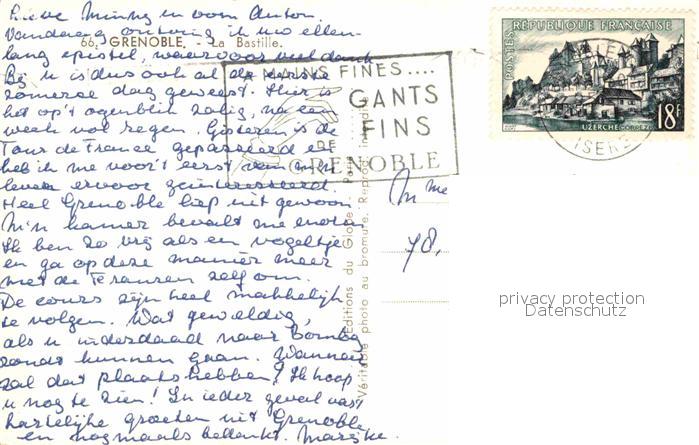 Lieve Minny en oom Anton.
Vandaag ontving ik uw ellen-
66. GRENOBLE. - La Bastille.
lang epistel, waarvoor veel dank
Bij u is dus ook al de eerste
zomerse dag geweest. Hier is
het op't ogenblik zalig, na een
week vol regen. Gisteren is de
Tour de France gepasseerd en
heb ik me voor't eerst van mijn
leven ervoor geïnteresseerd.
Heel Grenoble liep uit gewoon
M'n kamer bevalt me
Ik ben zo vrij als een vogeltje
en ga op deze manier meer
met de Fransen zelf om.
De cours zijn heel makkelijk
te volgen. Wat geweldig,
als u inderdaad naar
zoudt kunnen gaan. Wanneer
zal dat plaats hebben? Ik hoop
u nog te zien! In ieder geval vast
hartelijke groeten uit Grenoble
en nogmaals bedankt. Marijke.
A MAINS FINES....
GANTS
FINS
DE
GRENOBLE
Editions du Globe, Paris
Véritable photo au bromure. Reprod. interdite
POSTES
RÉPUBLIQUE FRANÇAISE
18F
UZERCHE
ISERE
78,
privacy protection
Datenschutz